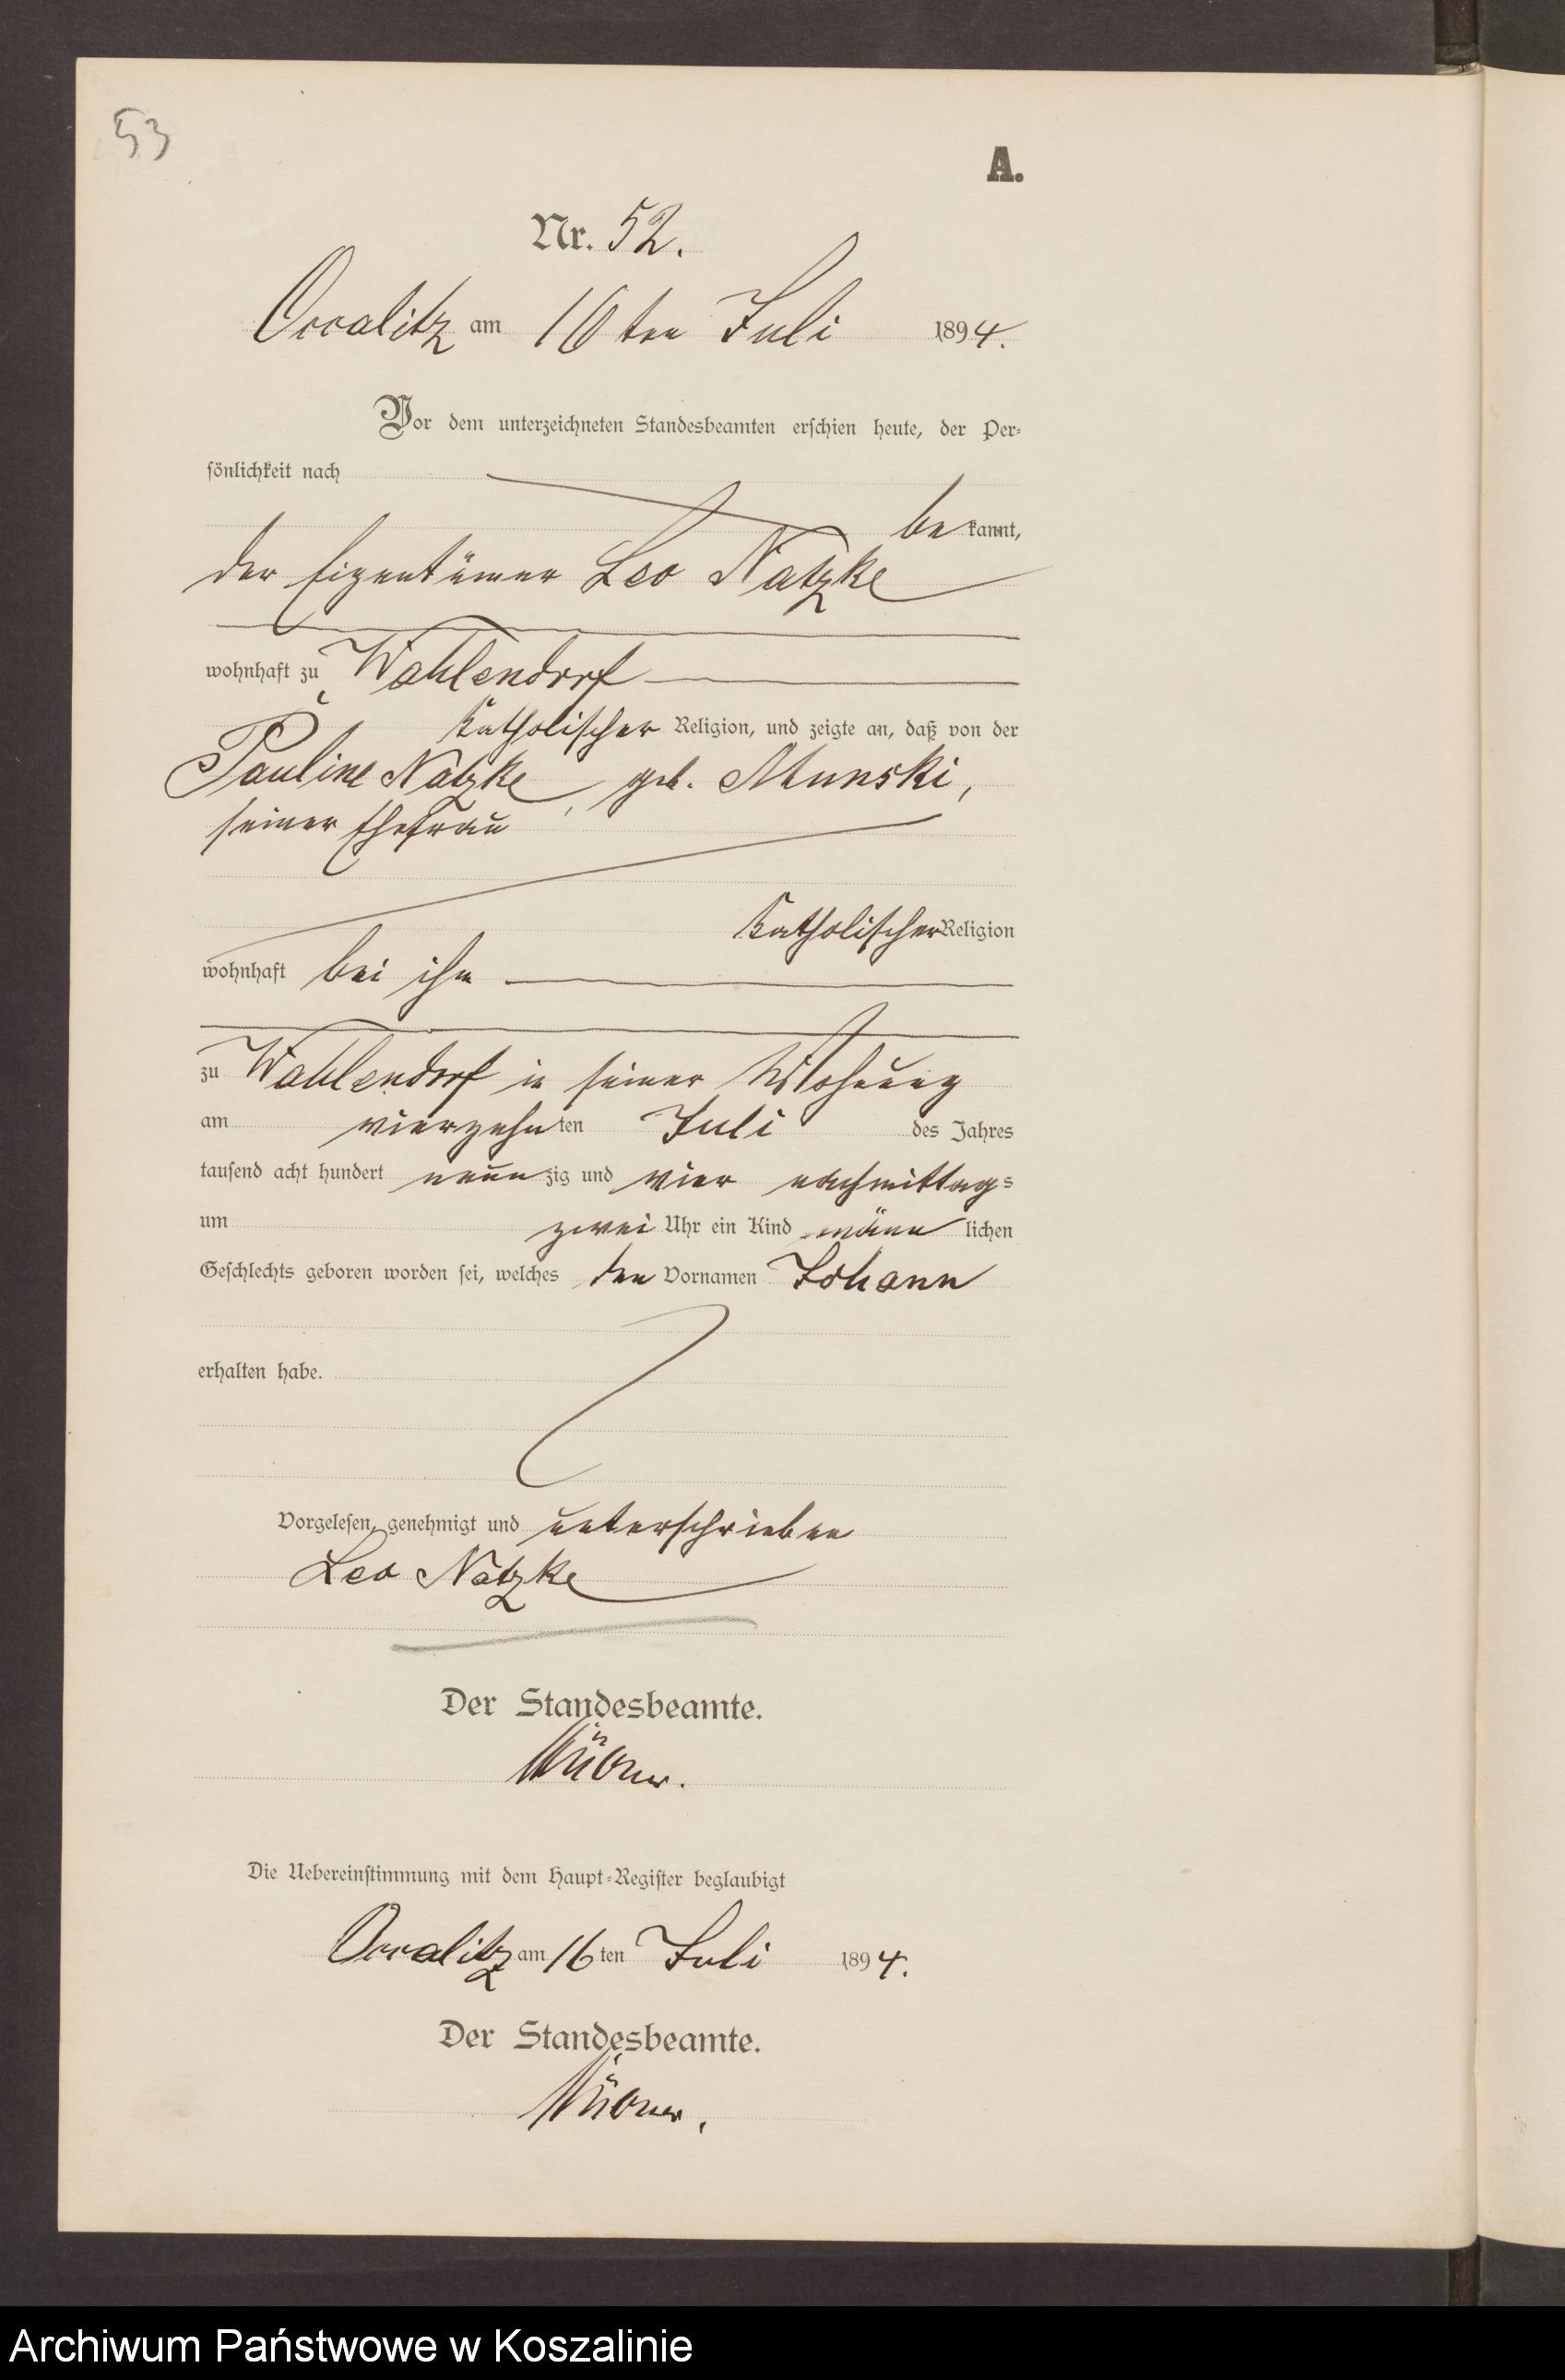 53
A.
Nr. 52.
am 16ten Juli 1894.
Vor dem unterzeichneten Standesbeamten erschien heute, der Per-
sönlichkeit nach
be kannt,
der Eigentümer Leo Natzke
wohnhaft zu Wahlendorf
katholischer Religion, und zeigte an, daß von der
Pauline Natzke, geb. Munski,
seiner Ehefrau
katholischer Religion
wohnhaft bei ihm
zu Wahlendorf in seiner Wohnung
am vierzehnten Juli des Jahres
tausend acht hundert neunzig und vier nachmittags
um zwei Uhr ein Kind männlichen
Geschlechts geboren worden sei, welches den Vornamen Johann
erhalten habe.
Vorgelesen, genehmigt und unterschrieben
Leo Natzke
Der Standesbeamte.
Die Uebereinstimmung mit dem Haupt-Register beglaubigt
am 16ten Juli 1894.
Der Standesbeamte.
Archiwum Państwowe w Koszalinie